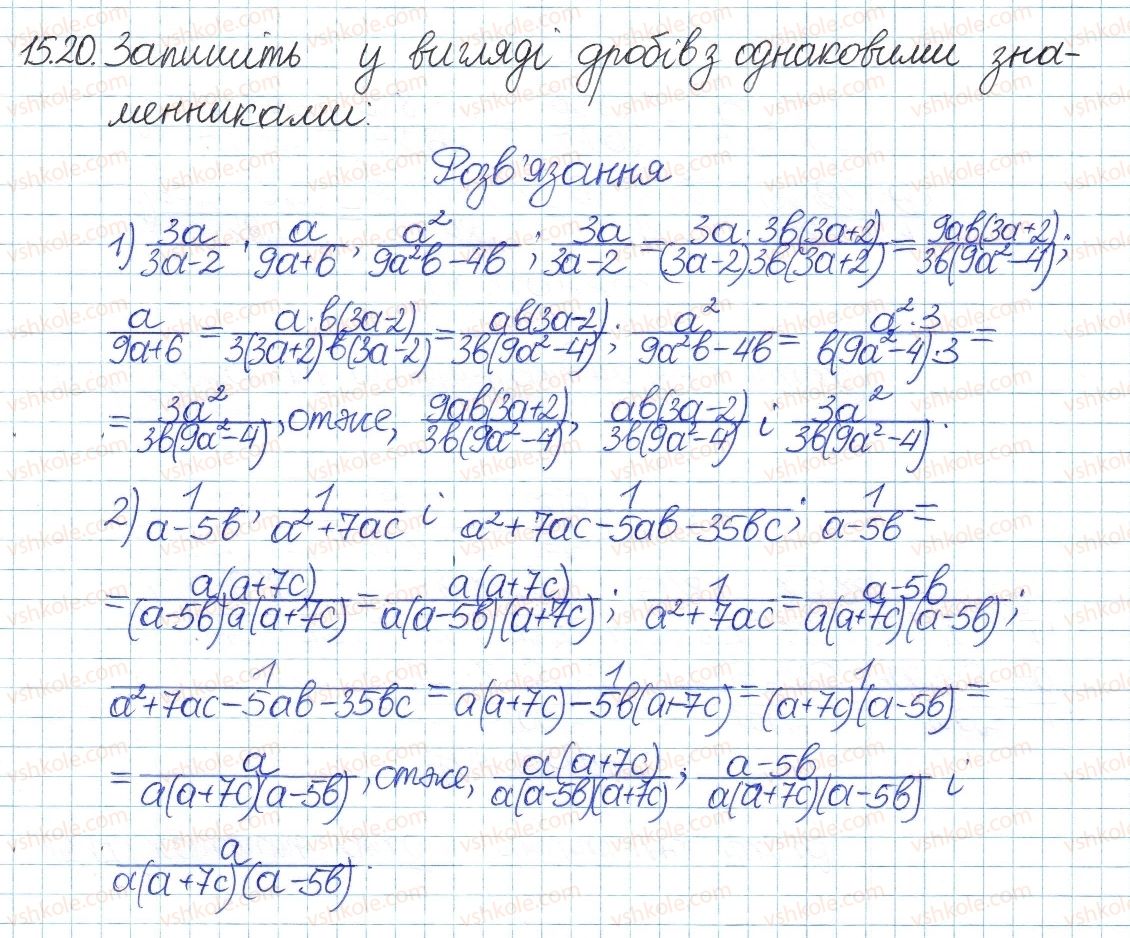 15.20. Запишіть у вигляді дробів з однаковими зна-
менниками:
Розв'язання
1) 3a/(3a-2), a/(9a+6), a²/(9a²b-4b); 3a/(3a-2) = (3a·3b(3a+2))/((3a-2)3b(3a+2)) = (9ab(3a+2))/(3b(9a²-4));
a/(9a+6) = (a·b(3a-2))/(3(3a+2)b(3a-2)) = (ab(3a-2))/(3b(9a²-4)); a²/(9a²b-4b) = (a²·3)/(b(9a²-4)·3) =
= 3a²/(3b(9a²-4)), отже, (9ab(3a+2))/(3b(9a²-4)), (ab(3a-2))/(3b(9a²-4)) і 3a²/(3b(9a²-4)).
2) 1/(a-5b), 1/(a²+7ac) і 1/(a²+7ac-5ab-35bc); 1/(a-5b) =
= (a(a+7c))/((a-5b)a(a+7c)) = (a(a+7c))/(a(a-5b)(a+7c)); 1/(a²+7ac) = (a-5b)/(a(a+7c)(a-5b));
1/(a²+7ac-5ab-35bc) = 1/(a(a+7c)-5b(a+7c)) = 1/((a+7c)(a-5b)) =
= a/(a(a+7c)(a-5b)), отже, (a(a+7c))/(a(a-5b)(a+7c)); (a-5b)/(a(a+7c)(a-5b)) і
a/(a(a+7c)(a-5b)).